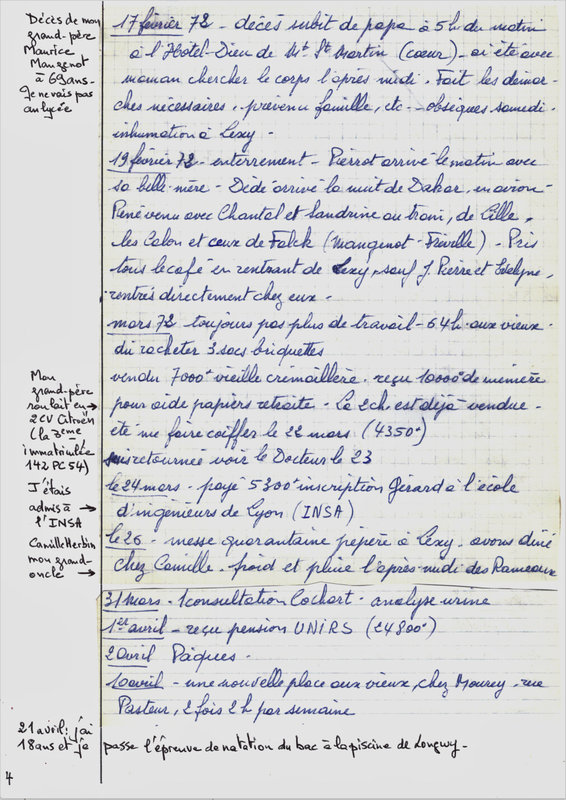 Décès de mon
grand-père
Maurice
Mangenot
à 69 ans -
Je ne vais pas
au lycée
17 février 72 - décès subit de papa à 5h du matin
à l'Hôtel-Dieu de Mt St Martin (cœur) - ai été avec
maman chercher le corps l'après midi. Fait les démar-
ches nécessaires, prévenu famille, etc - obsèques samedi -
inhumation à Lexy -
19 février 72 - enterrement - Pierrot arrivé le matin avec
sa belle-mère - Dédé arrivé la nuit de Dakar, en avion -
René venu avec Chantal et Sandrine au train, de Lille,
les Calon et ceux de Falck (Mangenot-Fréville) - Pris
tous le café en rentrant de Lexy, sauf J. Pierre et Evelyne,
rentrés directement chez eux -
mars 72 - toujours pas plus de travail - 64h aux vieux -
dû racheter 3 sacs briquettes
Mon
grand-père
roulait en →
2CV Citroën
(la 3ème
immatriculée
142 PC 54)
vendu 7000° vieille crémaillère, reçu 10000° de mémère
pour aide papiers retraite - La 2ch. est déjà vendue -
été me faire coiffer le 22 mars (4350°)
suis retournée voir le Docteur le 23
J'étais
admis à →
l'INSA
le 24 mars - payé 5300° inscription Gérard à l'école
d'ingénieurs de Lyon (INSA)
Camille Herbin
mon grand-
oncle →
le 26 - messe quarantaine pépère à Lexy - avons dîné
chez Camille - froid et pluie l'après-midi des Rameaux
31 mars - 1 consultation Cochart - analyse urine
1er avril - reçu pension UNIRS (24800°)
2 avril Pâques -
10 avril - une nouvelle place aux vieux, chez Mourey, rue
Pasteur, 2 fois 2h par semaine
21 avril : j'ai
18 ans et je passe l'épreuve de natation du bac à la piscine de Longwy -
4